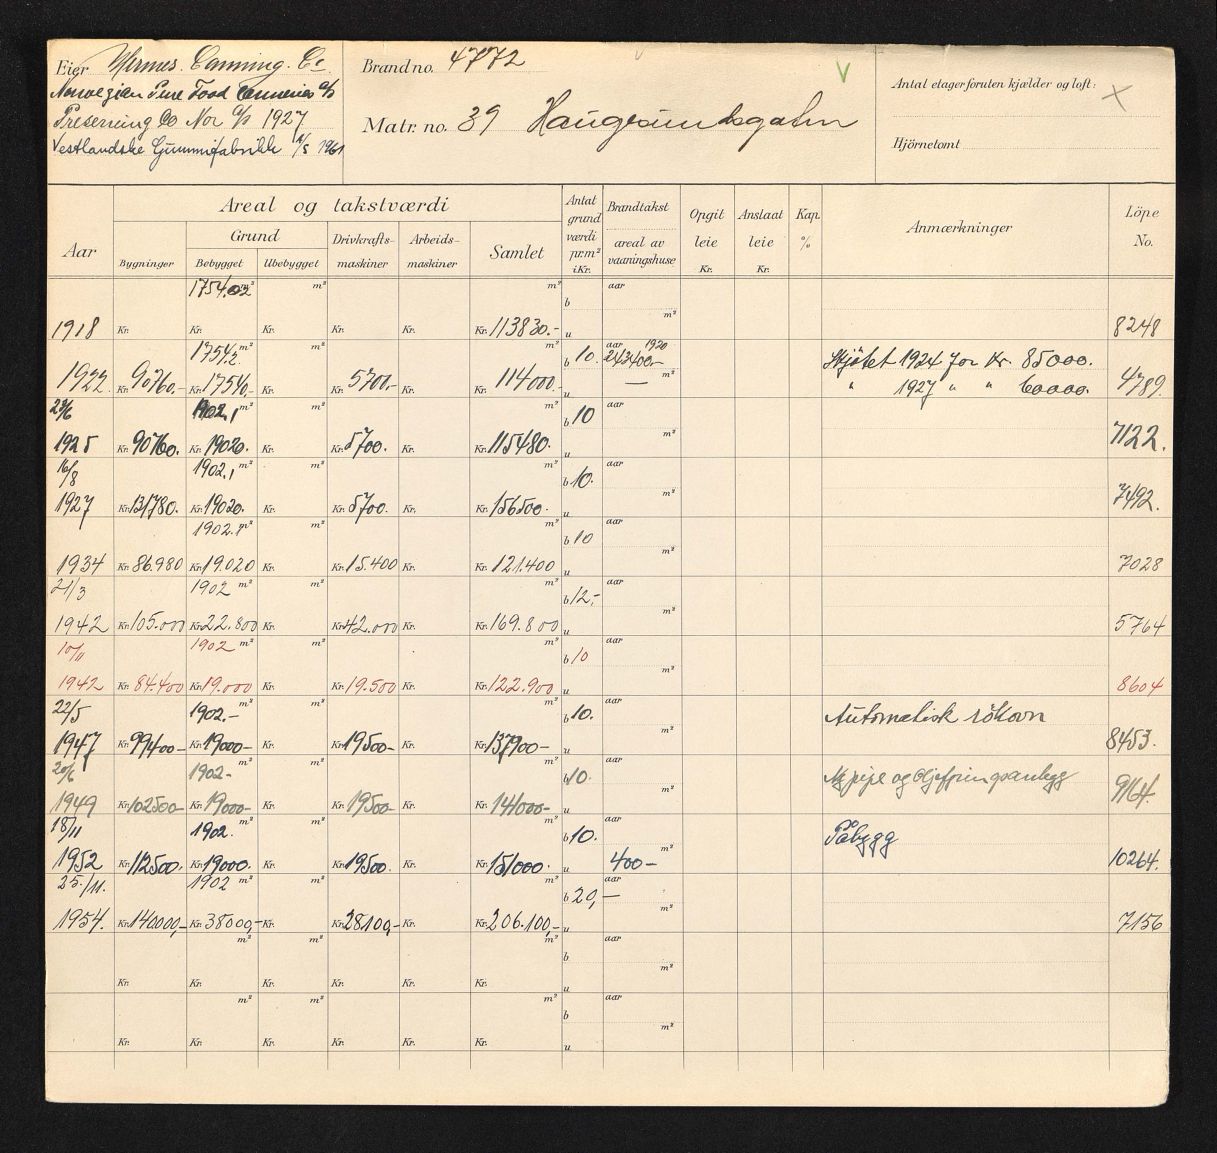 Eier Hermes. Canning. Co
Norwegian Pure Food Canneries A/S
Preserving Co Nor A/S 1927
Vestlandske Gummifabrikk A/S 1961
Brand no. 4772
Matr. no. 39 Haugesundsgaten
Antal etager foruten kjælder og loft: X
Hjörnetomt
Aar
Areal og takstværdi
Grund
Bygninger
Bebygget
Ubebygget
Drivkrafts-maskiner
Arbeids-maskiner
Samlet
Antat grund værdi pr.m² i Kr.
Brandtakst
areal av vaaningshuse
Opgit leie Kr.
Anslaat leie Kr.
Kap. %
Anmærkninger
Löpe No.
1754.02 m² m² m² b aar
1918 Kr. Kr. Kr. Kr. Kr. Kr. 113830.- u m² 8248
1754,2 m² m² m² b 10. aar 1920 243400.- Skjøtet 1924 for Kr. 85000.
1922 Kr. 90760.- Kr. 17540.- Kr. Kr. 5700.- Kr. Kr. 114000.- u — m² " 1927 " " 60000. 4789.
29/6 1902,1 m² m² m² b 10 aar
1925 Kr. 90760. Kr. 19020. Kr. Kr. 5700. Kr. Kr. 115480. u m² 7122.
16/8 1902,1 m² m² m² b 10. aar
1927 Kr. 131780. Kr. 19020. Kr. Kr. 5700. Kr. Kr. 156500. u m² 7492.
1902.1 m² m² m² b 10 aar
1934 Kr. 86.980 Kr. 19.020 Kr. Kr. 15.400 Kr. Kr. 121.400 u m² 7028
21/3 1902 m² m² m² b 12,- aar
1942 Kr. 105.000 Kr. 22.800 Kr. Kr. 42.000 Kr. Kr. 169.800 u m² 5764
10/11 1902 m² m² m² b 10 aar
1942 Kr. 84.400 Kr. 19.000 Kr. Kr. 19.500 Kr. Kr. 122.900 u m² 8604
22/5 1902.- m² m² m² b 10. aar Automatisk rökovn
1947 Kr. 99400- Kr. 19000- Kr. Kr. 19500- Kr. Kr. 137900- u m² 8453.
20/6 1902- m² m² m² b 10. aar Ny pipe og Oljefyringsanlegg
1949 Kr. 102500- Kr. 19000- Kr. Kr. 19500- Kr. Kr. 141000- u m² 9164.
18/11 1902. m² m² m² b 10. aar Påbygg
1952 Kr. 112500. Kr. 19000. Kr. Kr. 19500. Kr. Kr. 151000. u 400- m² 10264.
25./11. 1902 m² m² m² b 20,- aar
1954. Kr. 140000,- Kr. 38000,- Kr. Kr. 28100,- Kr. Kr. 206.100,- u m² 7156
m² m² m² b aar
Kr. Kr. Kr. Kr. Kr. Kr. u m²
m² m² m² b aar
Kr. Kr. Kr. Kr. Kr. Kr. u m²